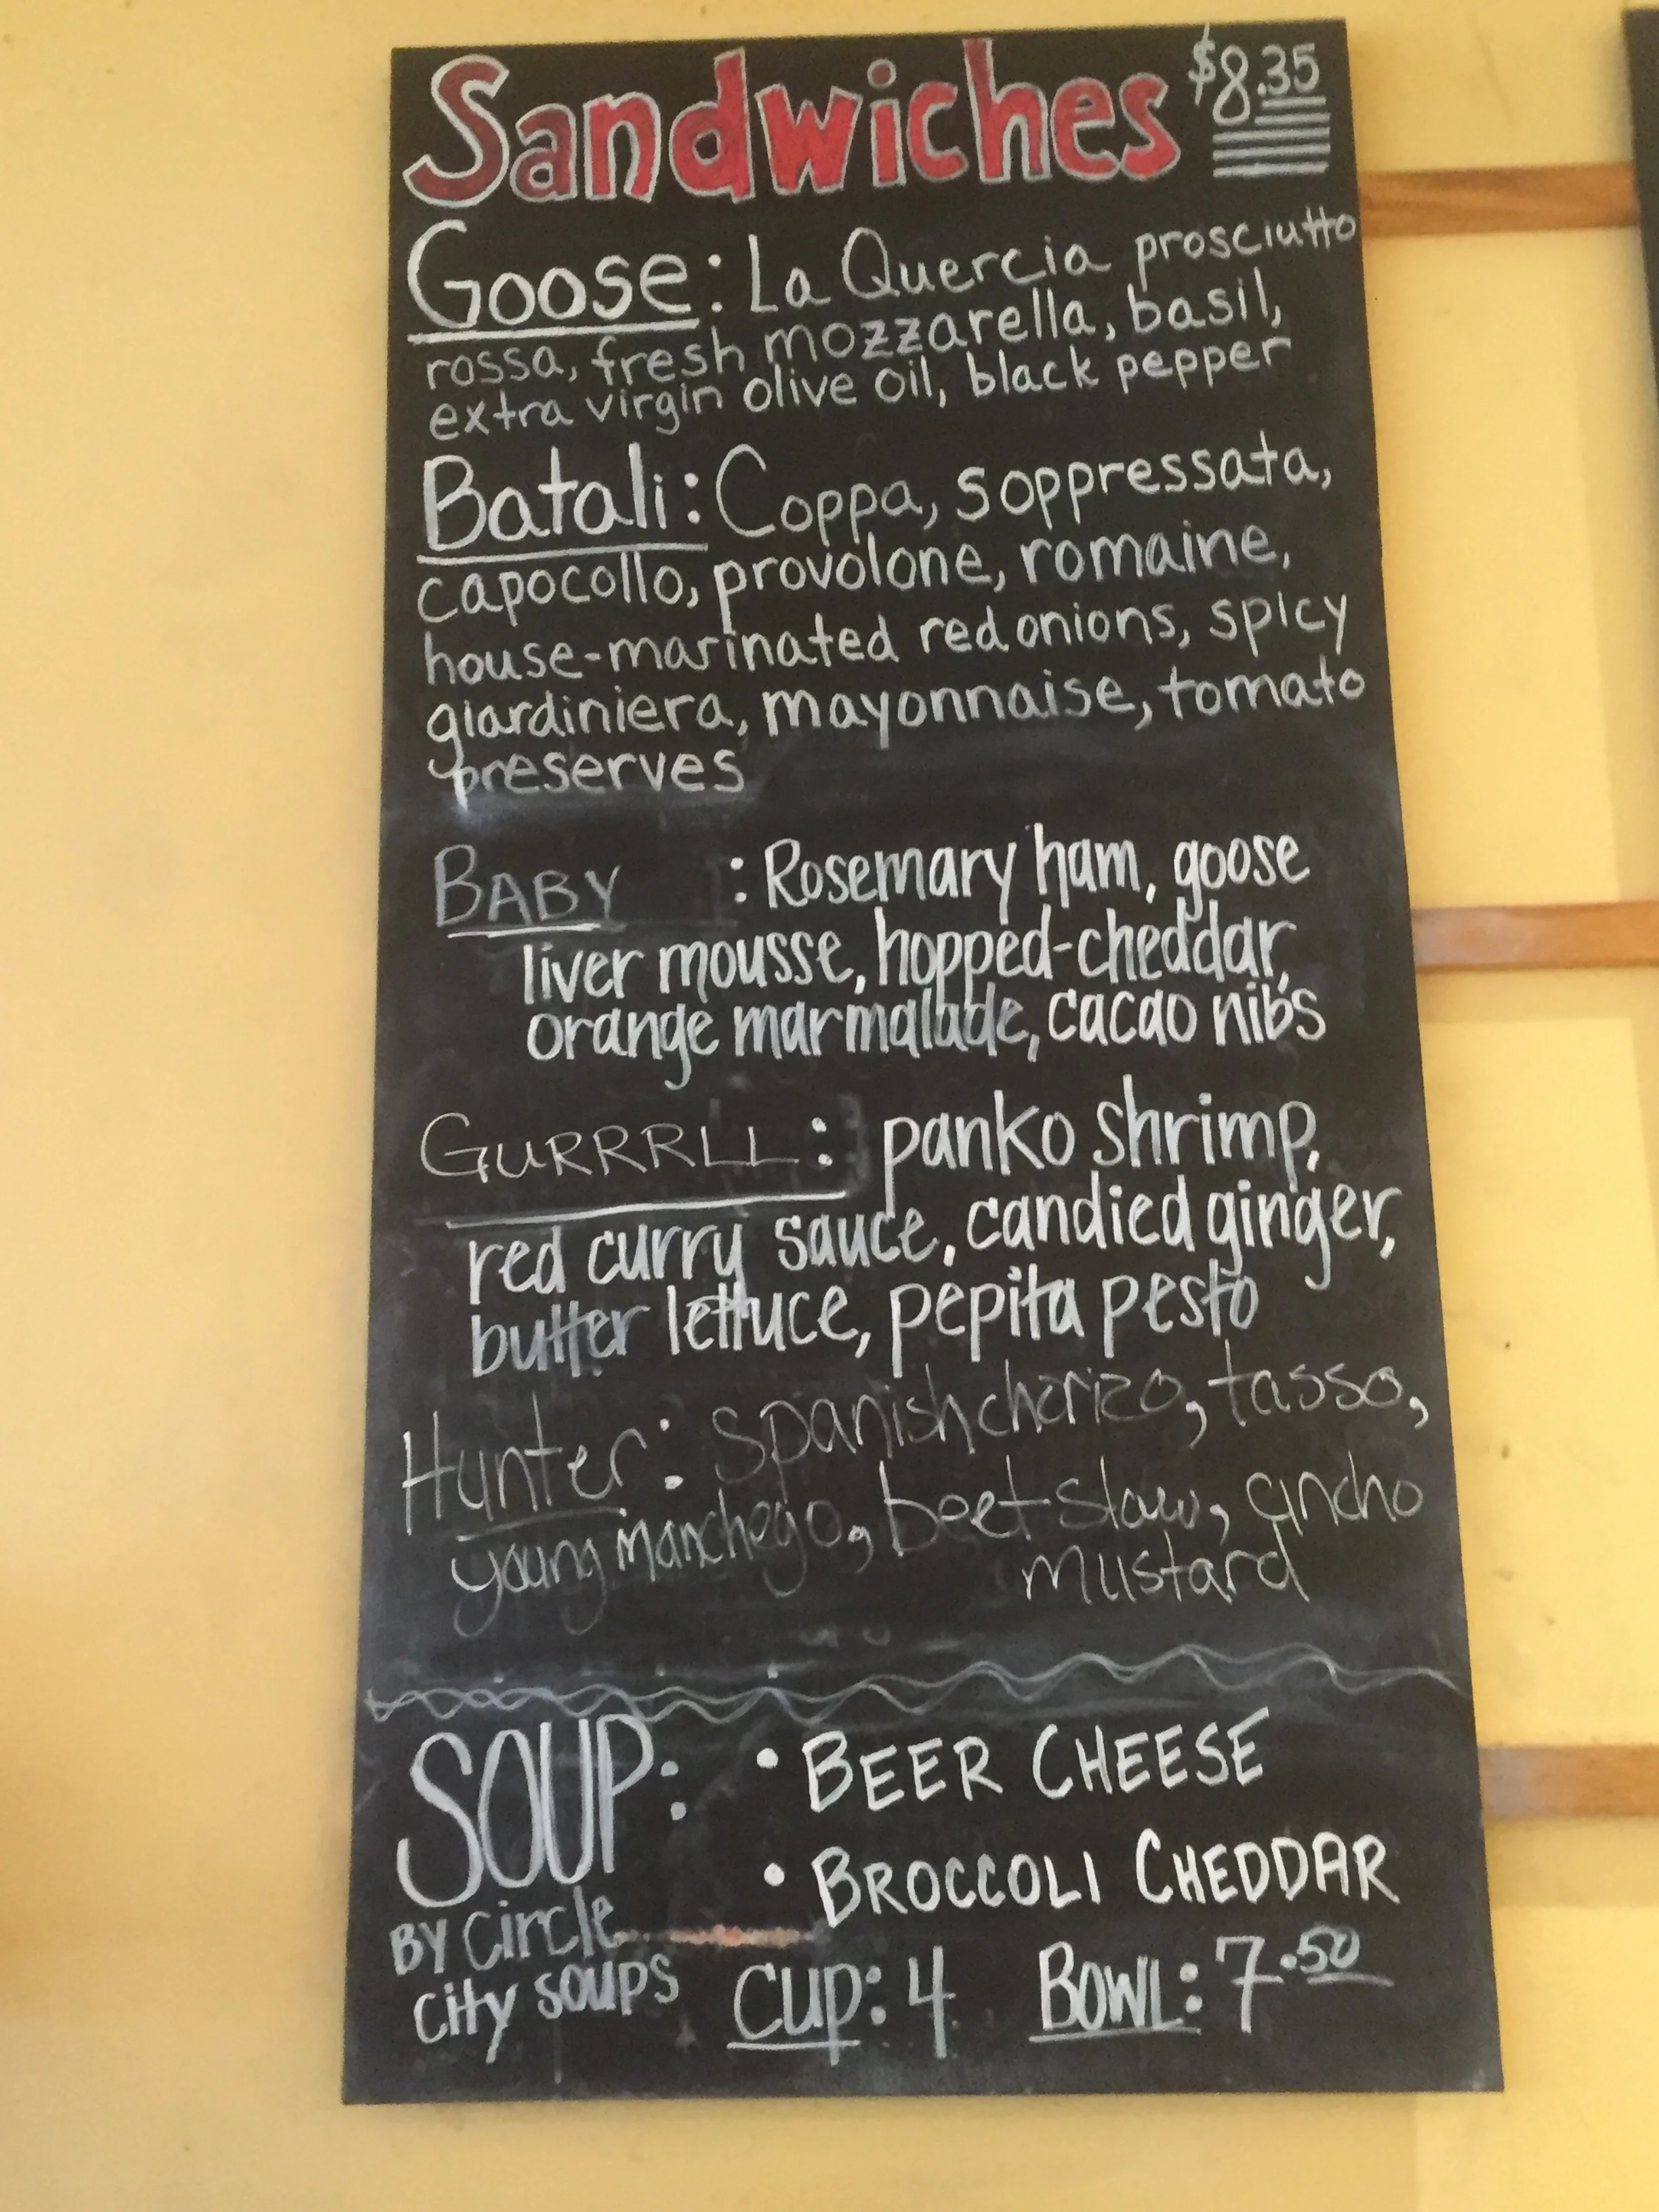 Sandwiches $8.35
Goose: La Quercia prosciutto
rossa, fresh mozzarella, basil,
extra virgin olive oil, black pepper
Batali: Coppa, soppressata,
capocollo, provolone, romaine,
house-marinated red onions, spicy
giardiniera, mayonnaise, tomato
preserves
BABY : Rosemary ham, goose
liver mousse, hopped-cheddar,
orange marmalade, cacao nibs
GURRRLL: panko shrimp,
red curry sauce, candied ginger,
butter lettuce, pepita pesto
Hunter: Spanish chorizo, tasso,
young manchego, beet slaw, ancho
mustard
SOUP: • BEER CHEESE
• BROCCOLI CHEDDAR
BY Circle
City soups
Cup: 4 BOWL: 7.50